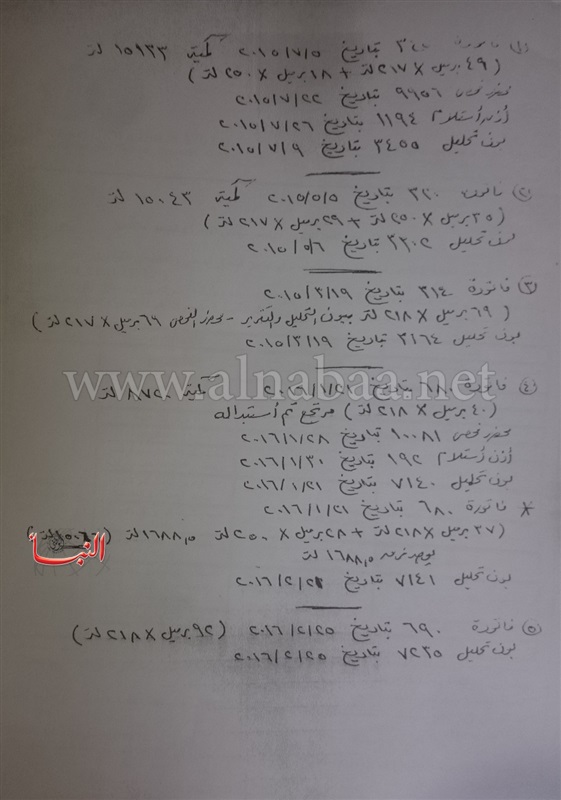 (١) فاتورة ٣٤٠ بتاريخ ٢٠١٥/٧/٥ كمية ١٥١٣٣ لتر
(٤٩ برميل × ٢١٧ لتر + ١٨ برميل × ٢٥٠ لتر)
محضر فحص ٩٦٥٦ بتاريخ ٢٠١٥/٧/٢٢
أذن أستلام ١١٩٤ بتاريخ ٢٠١٥/٧/٢٦
بون تحليل ٣٤٥٥ بتاريخ ٢٠١٥/٧/٩
(٢) فاتورة ٣٢٠ بتاريخ ٢٠١٥/٥/٥ كمية ١٥٠٤٣ لتر
(٣٥ برميل × ٢٥٠ لتر + ٢٩ برميل × ٢١٧ لتر)
بون تحليل ٣٣٠٢ بتاريخ ٢٠١٥/٥/٦
(٣) فاتورة ٣١٤ بتاريخ ٢٠١٥/٣/١٩
(٦٩ برميل × ٢١٨ لتر ببون التحليل والتقرير - محضر الفحص ٦٩ برميل × ٢١٧ لتر)
بون تحليل ٣١٦٤ بتاريخ ٢٠١٥/٣/١٩
www.alnabaa.net
(٤) فاتورة ٦٨٠ بتاريخ ٢٠١٦/١/٢١ كمية ٨٧٢٠ لتر
(٤٠ برميل × ٢١٨ لتر) مرتجع تم أستبداله
محضر فحص ١٠٠٨١ بتاريخ ٢٠١٦/١/٢٨
أذن أستلام ١٩٢ بتاريخ ٢٠١٦/١/٣٠
بون تحليل ٧١٤٠ بتاريخ ٢٠١٦/١/٢١
* فاتورة ٦٨٠ بتاريخ ٢٠١٦/١/٢١
(٣٧ برميل × ٢١٨ لتر + ٢٨ برميل × ٢٥٠ لتر ١٦٨٨,٥ لتر
النبأ
يوجد ١٦٨٨,٥ لتر
بون تحليل ٧١٤١ بتاريخ ٢٠١٦/٢/٢١
(٥) فاتورة ٦٩٠ بتاريخ ٢٠١٦/٢/٢٥ (٩٢ برميل × ٢١٨ لتر)
بون تحليل ٧٢٣٥ بتاريخ ٢٠١٦/٢/٢٥